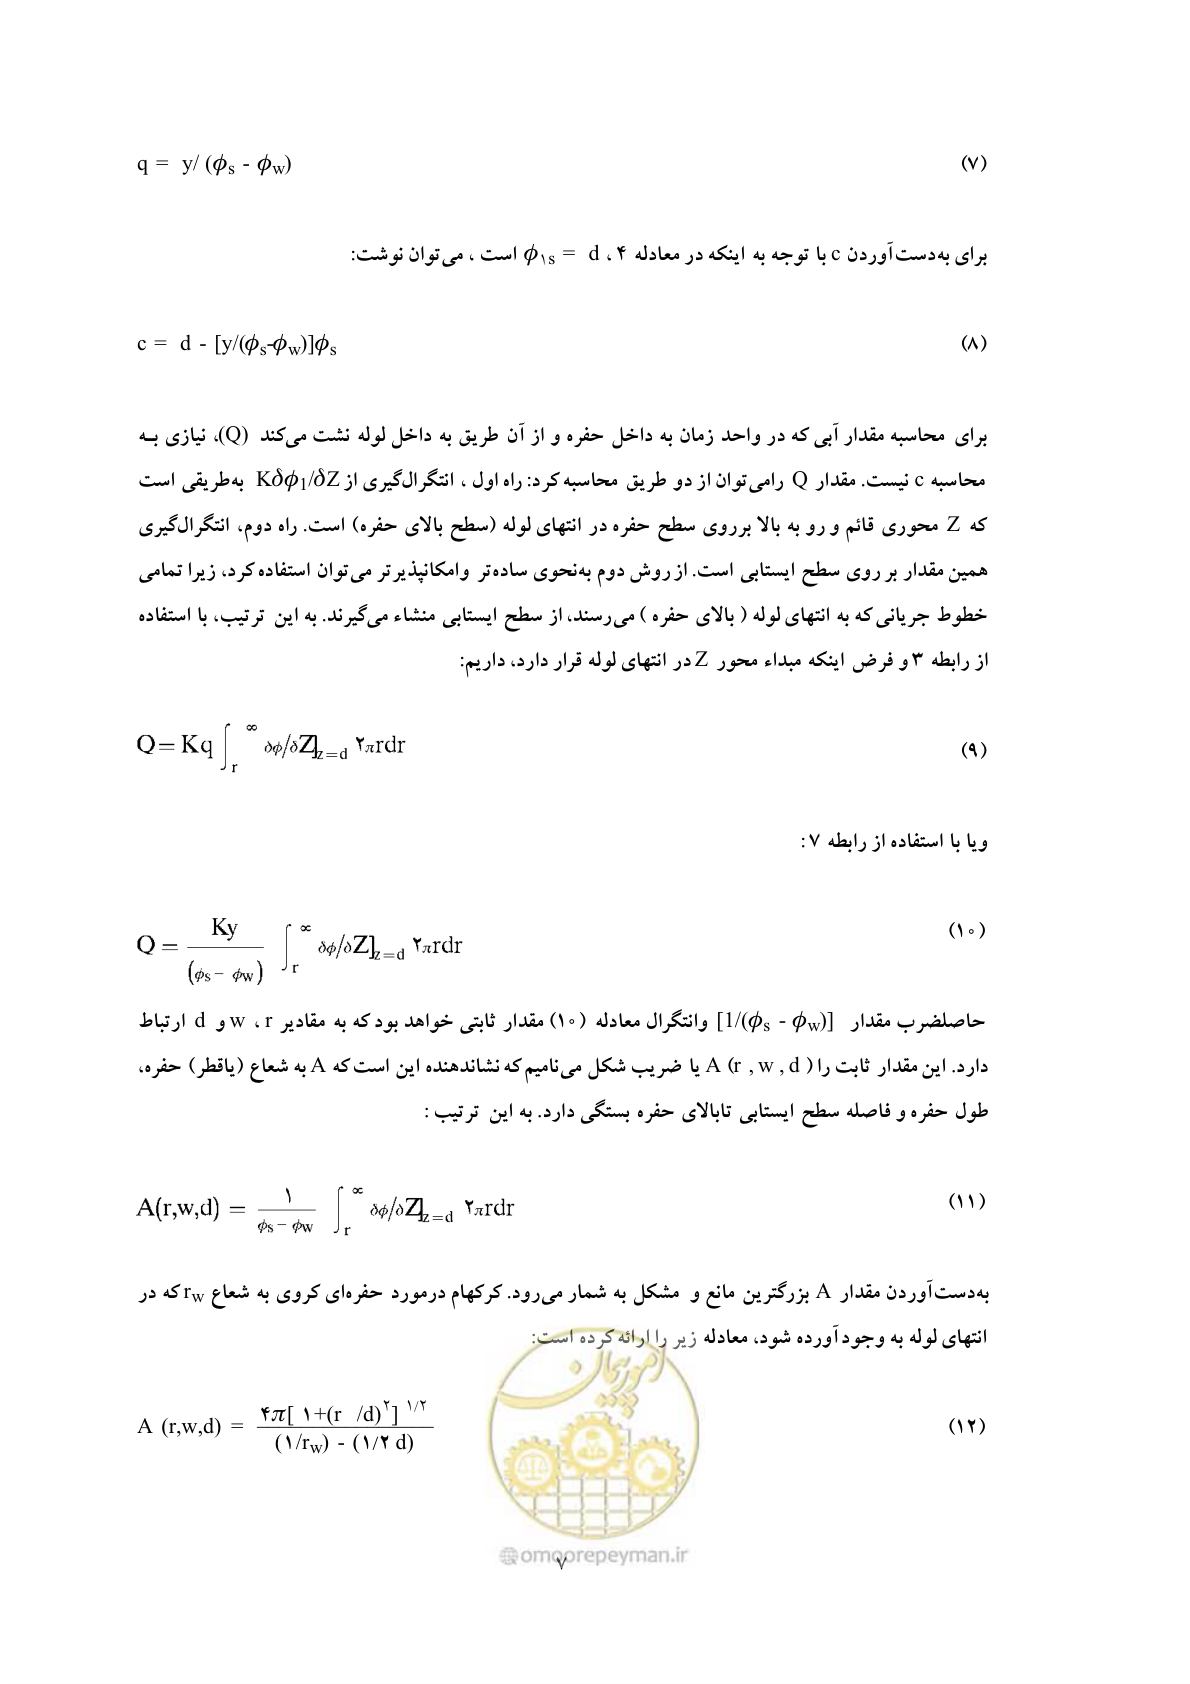 q = y/ (ϕs - ϕw) (۷)
برای به‌دست‌آوردن c با توجه به اینکه در معادله ۴ ، ϕ۱s = d است ، می‌توان نوشت:
c = d - [y/(ϕs-ϕw)]ϕs (۸)
برای محاسبه مقدار آبی که در واحد زمان به داخل حفره و از آن طریق به داخل لوله نشت می‌کند (Q)، نیازی به
محاسبه c نیست. مقدار Q رامی‌توان از دو طریق محاسبه کرد: راه اول ، انتگرال‌گیری از Kδϕ1/δZ به‌طریقی است
که Z محوری قائم و رو به بالا برروی سطح حفره در انتهای لوله (سطح بالای حفره) است. راه دوم، انتگرال‌گیری
همین مقدار بر روی سطح ایستابی است. از روش دوم به‌نحوی ساده‌تر وامکانپذیرتر می‌توان استفاده کرد، زیرا تمامی
خطوط جریانی که به انتهای لوله ( بالای حفره ) می‌رسند، از سطح ایستابی منشاء می‌گیرند. به این ترتیب، با استفاده
از رابطه ۳ و فرض اینکه مبداء محور Z در انتهای لوله قرار دارد، داریم:
Q = Kq ∫r^∞ δϕ/δZ]z=d ۲πrdr (۹)
ویا با استفاده از رابطه ۷ :
Q = Ky/(ϕs − ϕw) ∫r^∞ δϕ/δZ]z=d ۲πrdr (۱۰)
حاصلضرب مقدار [1/(ϕs - ϕw)] وانتگرال معادله (۱۰) مقدار ثابتی خواهد بود که به مقادیر w ، r و d ارتباط
دارد. این مقدار ثابت را A (r , w , d ) یا ضریب شکل می‌نامیم که نشاندهنده این است که A به شعاع (یاقطر) حفره،
طول حفره و فاصله سطح ایستابی تابالای حفره بستگی دارد. به این ترتیب :
A(r,w,d) = ۱/ϕs − ϕw ∫r^∞ δϕ/δZ]z=d ۲πrdr (۱۱)
به‌دست‌آوردن مقدار A بزرگترین مانع و مشکل به شمار می‌رود. کرکهام درمورد حفره‌ای کروی به شعاع rw که در
انتهای لوله به وجود آورده شود، معادله زیر را ارائه کرده است:
A (r,w,d) = ۴π[ ۱+(r /d)^۲] ^۱/۲ / (۱/rw) - (۱/۲ d) (۱۲)
امور پیمان
@omoorepeyman.ir
۷